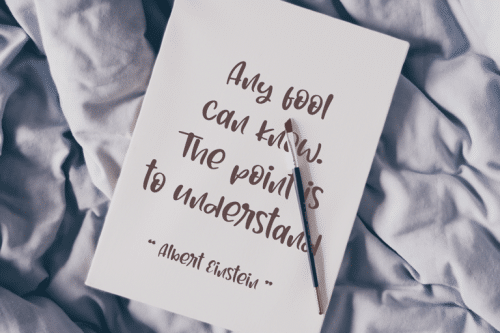 Any fool
can know.
The point is
to understand
“ Albert Einstein ”